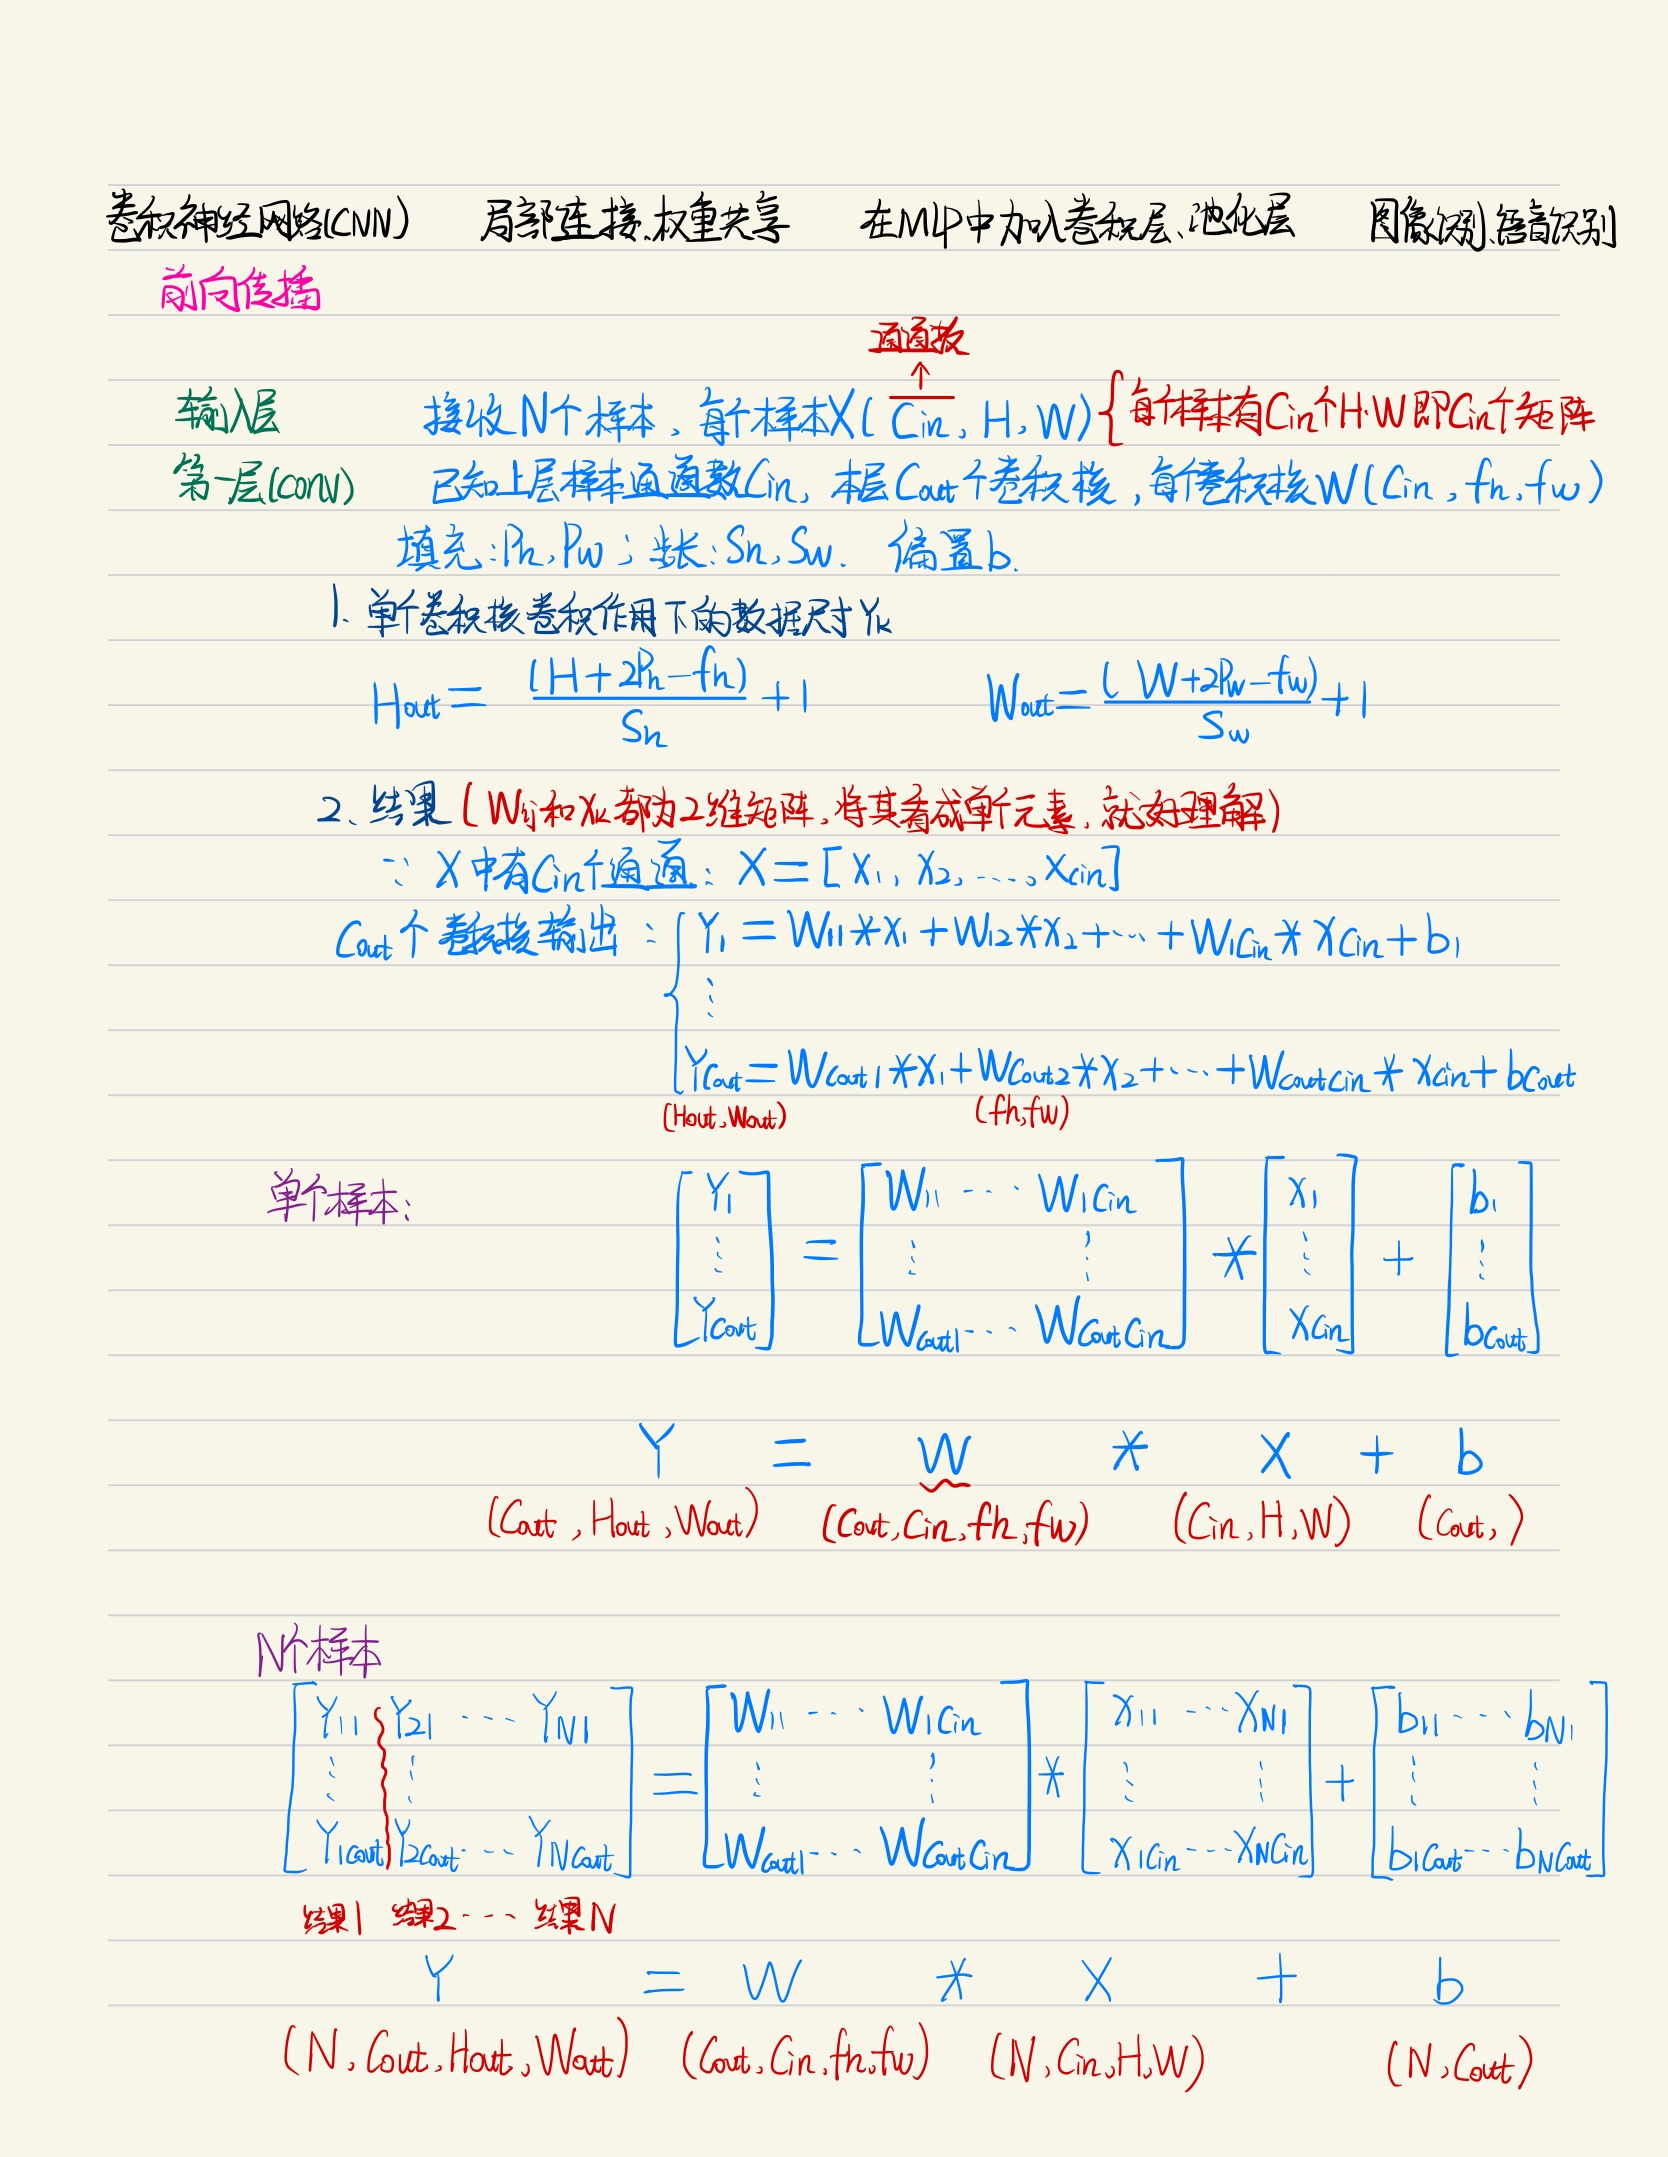 卷积神经网络(CNN) 局部连接、权重共享 在MLP中加入卷积层、池化层 图像识别、语音识别
前向传播
通道数
↑
输入层 接收N个样本，每个样本X( Cin, H, W) { 每个样本有Cin个H·W 即Cin个矩阵
第一层(CONV) 已知上层样本通道数Cin, 本层Cout个卷积核，每个卷积核W(Cin, fh, fw)
填充:Ph, Pw ; 步长: Sh, Sw. 偏置b.
1. 单个卷积核卷积作用下的数据尺寸Yk
Hout = (H+2Ph-fh)/Sh +1 Wout = (W+2Pw-fw)/Sw +1
2、结果 ( Wij和Xk都为2维矩阵，将其看成单个元素，就好理解)
∵ X中有Cin个通道: X = [X1, X2, ..., XCin]
Cout个卷积核输出: { Y1 = W11*X1 + W12*X2 + ... + W1Cin * XCin + b1
⋮
YCout = WCout1*X1 + WCout2*X2 + ... + WCoutCin * XCin + bCout
(Hout, Wout) (fh, fw)
单个样本:
[Y1 ⋮ YCout] = [W11 ... W1Cin ⋮ ⋮ WCout1 ... WCoutCin] * [X1 ⋮ XCin] + [b1 ⋮ bCout]
Y = W * X + b
(Cout, Hout, Wout) (Cout, Cin, fh, fw) (Cin, H, W) (Cout, )
N个样本
[Y11 Y21 ... YN1 ⋮ ⋮ Y1Cout Y2Cout ... YNCout] = [W11 ... W1Cin ⋮ ⋮ WCout1 ... WCoutCin] * [X11 ... XN1 ⋮ ⋮ X1Cin ... XNCin] + [b11 ... bN1 ⋮ ⋮ b1Cout ... bNCout]
结果1 结果2 ... 结果N
Y = W * X + b
(N, Cout, Hout, Wout) (Cout, Cin, fh, fw) (N, Cin, H, W) (N, Cout)